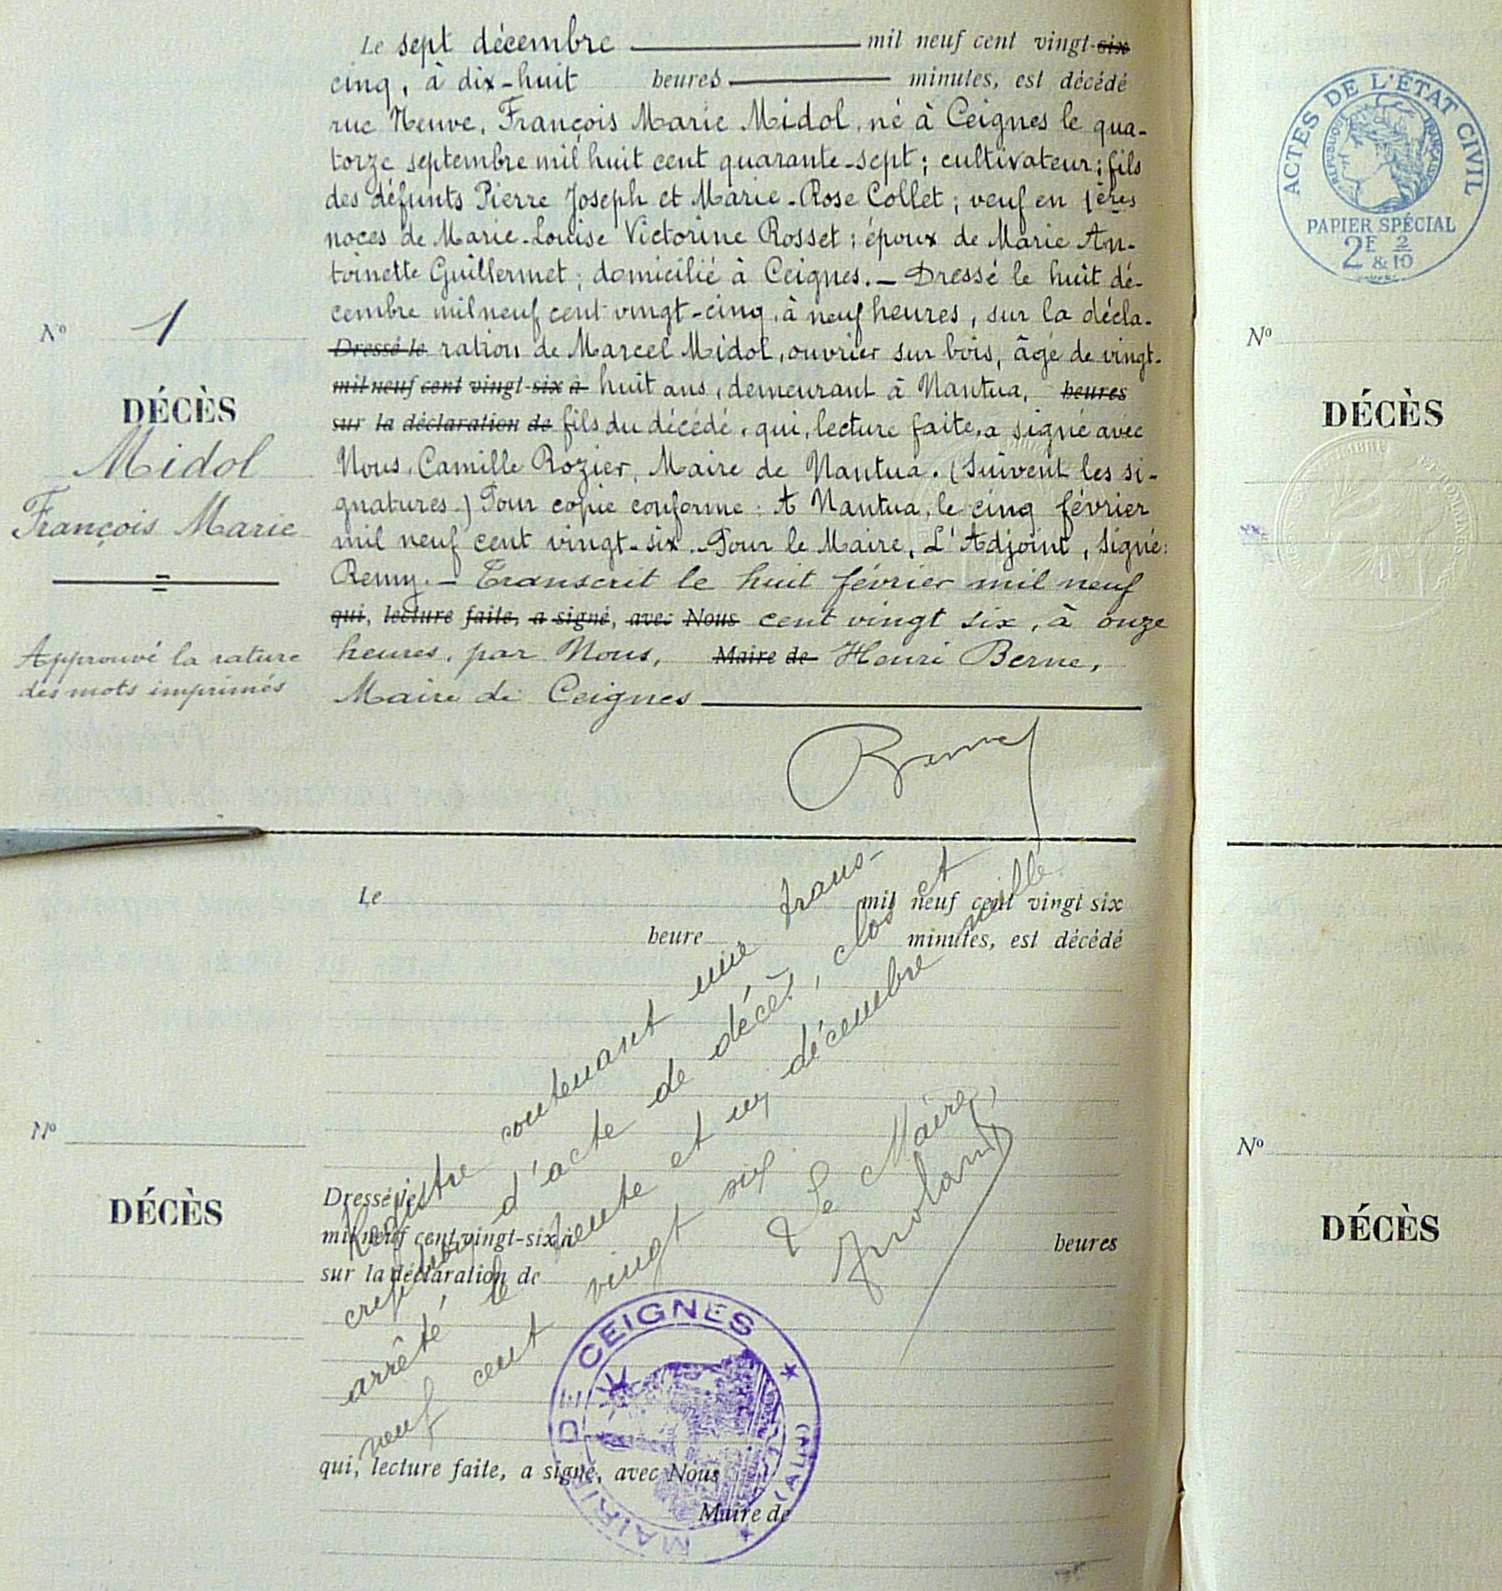 Le sept décembre mil neuf cent vingt-six
cinq, à dix-huit heures minutes, est décédé
rue Neuve, François Marie Midol, né à Ceignes le qua-
torze septembre mil huit cent quarante-sept; cultivateur; fils
des défunts Pierre Joseph et Marie-Rose Collet; veuf en 1ères
noces de Marie-Louise Victorine Rosset; époux de Marie An-
toinette Guillermet; domicilié à Ceignes.— Dressé le huit dé-
cembre mil neuf cent vingt-cinq, à neuf heures, sur la décla-
Dressé le ration de Marcel Midol, ouvrier sur bois, âgé de vingt-
mil neuf cent vingt-six à huit ans, demeurant à Nantua, heures
sur la déclaration de fils du décédé, qui, lecture faite, a signé avec
Nous, Camille Rozier, Maire de Nantua. (Suivent les si-
gnatures.) Pour copie conforme: A Nantua, le cinq février
mil neuf cent vingt-six. Pour le Maire, L'Adjoint, Signé:
Remy.— Transcrit le huit février mil neuf
qui, lecture faite, a signé, avec Nous cent vingt six, à onze
heures, par Nous, Maire de Henri Berne,
Maire de Ceignes
Berne
N° 1
DÉCÈS
Midol
François Marie
Approuvé la rature
des mots imprimés
Le mil neuf cent vingt six
heure minutes, est décédé
Dressé le
mil neuf cent vingt-six à heures
sur la déclaration de
qui, lecture faite, a signé, avec Nous
Maire de
N°
DÉCÈS
Registre contenant une trans-
cription d'acte de décès, clos et
arrêté le trente et un décembre mille
neuf cent vingt six.
Le Maire,
MAIRIE DE CEIGNES
(AIN)
ACTES DE L'ÉTAT CIVIL
RÉPUBLIQUE FRANÇAISE
PAPIER SPÉCIAL
2F & 2/10
N°
DÉCÈS
N°
DÉCÈS